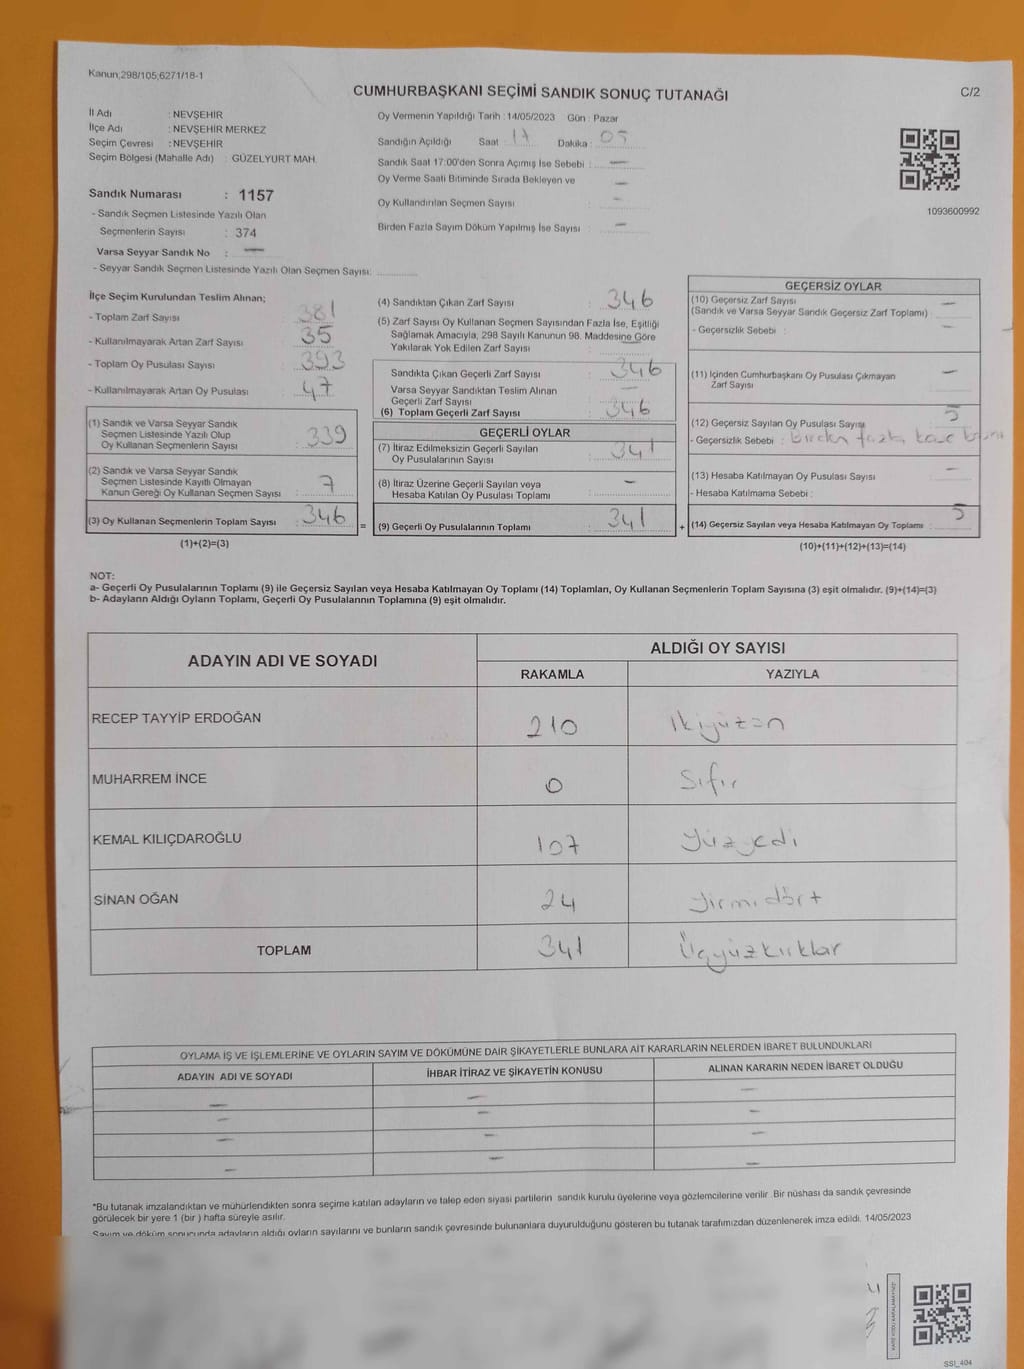 Kanun;298/105;6271/18-1
CUMHURBAŞKANI SEÇİMİ SANDIK SONUÇ TUTANAĞI
C/2
İl Adı : NEVŞEHİR
İlçe Adı : NEVŞEHİR MERKEZ
Seçim Çevresi : NEVŞEHİR
Seçim Bölgesi (Mahalle Adı) : GÜZELYURT MAH.
Sandık Numarası : 1157
- Sandık Seçmen Listesinde Yazılı Olan
Seçmenlerin Sayısı : 374
Varsa Seyyar Sandık No : —
- Seyyar Sandık Seçmen Listesinde Yazılı Olan Seçmen Sayısı:
Oy Vermenin Yapıldığı Tarih : 14/05/2023 Gün : Pazar
Sandığın Açıldığı Saat : 17 Dakika : 05
Sandık Saat 17:00'den Sonra Açımış İse Sebebi : —
Oy Verme Saati Bitiminde Sırada Bekleyen ve —
Oy Kullandırılan Seçmen Sayısı : -
Birden Fazla Sayım Döküm Yapılmış İse Sayısı : —
1093600992
İlçe Seçim Kurulundan Teslim Alınan;
- Toplam Zarf Sayısı : 381
- Kullanılmayarak Artan Zarf Sayısı : 35
- Toplam Oy Pusulası Sayısı : 393
- Kullanılmayarak Artan Oy Pusulası : 47
(1) Sandık ve Varsa Seyyar Sandık
Seçmen Listesinde Yazılı Olup
Oy Kullanan Seçmenlerin Sayısı : 339
(2) Sandık ve Varsa Seyyar Sandık
Seçmen Listesinde Kayıtlı Olmayan
Kanun Gereği Oy Kullanan Seçmen Sayısı : 7
(3) Oy Kullanan Seçmenlerin Toplam Sayısı : 346
(1)+(2)=(3)
=
(4) Sandıktan Çıkan Zarf Sayısı : 346
(5) Zarf Sayısı Oy Kullanan Seçmen Sayısından Fazla İse, Eşitliği
Sağlamak Amacıyla, 298 Sayılı Kanunun 98. Maddesine Göre
Yakılarak Yok Edilen Zarf Sayısı : —
Sandıkta Çıkan Geçerli Zarf Sayısı : 346
Varsa Seyyar Sandıktan Teslim Alınan
Geçerli Zarf Sayısı : —
(6) Toplam Geçerli Zarf Sayısı : 346
GEÇERLİ OYLAR
(7) İtiraz Edilmeksizin Geçerli Sayılan
Oy Pusulalarının Sayısı : 341
(8) İtiraz Üzerine Geçerli Sayılan veya
Hesaba Katılan Oy Pusulası Toplamı : —
(9) Geçerli Oy Pusulalarının Toplamı : 341
+
GEÇERSİZ OYLAR
(10) Geçersiz Zarf Sayısı —
(Sandık ve Varsa Seyyar Sandık Geçersiz Zarf Toplamı) :
- Geçersizlik Sebebi : —
(11) İçinden Cumhurbaşkanı Oy Pusulası Çıkmayan —
Zarf Sayısı
(12) Geçersiz Sayılan Oy Pusulası Sayısı : 5
- Geçersizlik Sebebi : birden fazla kaşe
(13) Hesaba Katılmayan Oy Pusulası Sayısı : —
- Hesaba Katılmama Sebebi :
(14) Geçersiz Sayılan veya Hesaba Katılmayan Oy Toplamı : 5
(10)+(11)+(12)+(13)=(14)
NOT:
a- Geçerli Oy Pusulalarının Toplamı (9) ile Geçersiz Sayılan veya Hesaba Katılmayan Oy Toplamı (14) Toplamları, Oy Kullanan Seçmenlerin Toplam Sayısına (3) eşit olmalıdır. (9)+(14)=(3)
b- Adayların Aldığı Oyların Toplamı, Geçerli Oy Pusulalarının Toplamına (9) eşit olmalıdır.
ADAYIN ADI VE SOYADI
ALDIĞI OY SAYISI
RAKAMLA YAZIYLA
RECEP TAYYİP ERDOĞAN 210 ikiyüzon
MUHARREM İNCE 0 Sıfır
KEMAL KILIÇDAROĞLU 107 Yüzyedi
SİNAN OĞAN 24 yirmidört
TOPLAM 341
OYLAMA İŞ VE İŞLEMLERİNE VE OYLARIN SAYIM VE DÖKÜMÜNE DAİR ŞİKAYETLERLE BUNLARA AİT KARARLARIN NELERDEN İBARET BULUNDUKLARI
ADAYIN ADI VE SOYADI İHBAR İTİRAZ VE ŞİKAYETİN KONUSU ALINAN KARARIN NEDEN İBARET OLDUĞU
— — —
— — —
— — —
— — —
*Bu tutanak imzalandıktan ve mühürlendikten sonra seçime katılan adayların ve talep eden siyasi partilerin sandık kurulu üyelerine veya gözlemcilerine verilir .Bir nüshası da sandık çevresinde
görülecek bir yere 1 (bir ) hafta süreyle asılır.
Sayım ve döküm sonucunda adayların aldığı oyların sayılarını ve bunların sandık çevresinde bulunanlara duyurulduğunu gösteren bu tutanak tarafımızdan düzenlenerek imza edildi. 14/05/2023
SSI_404